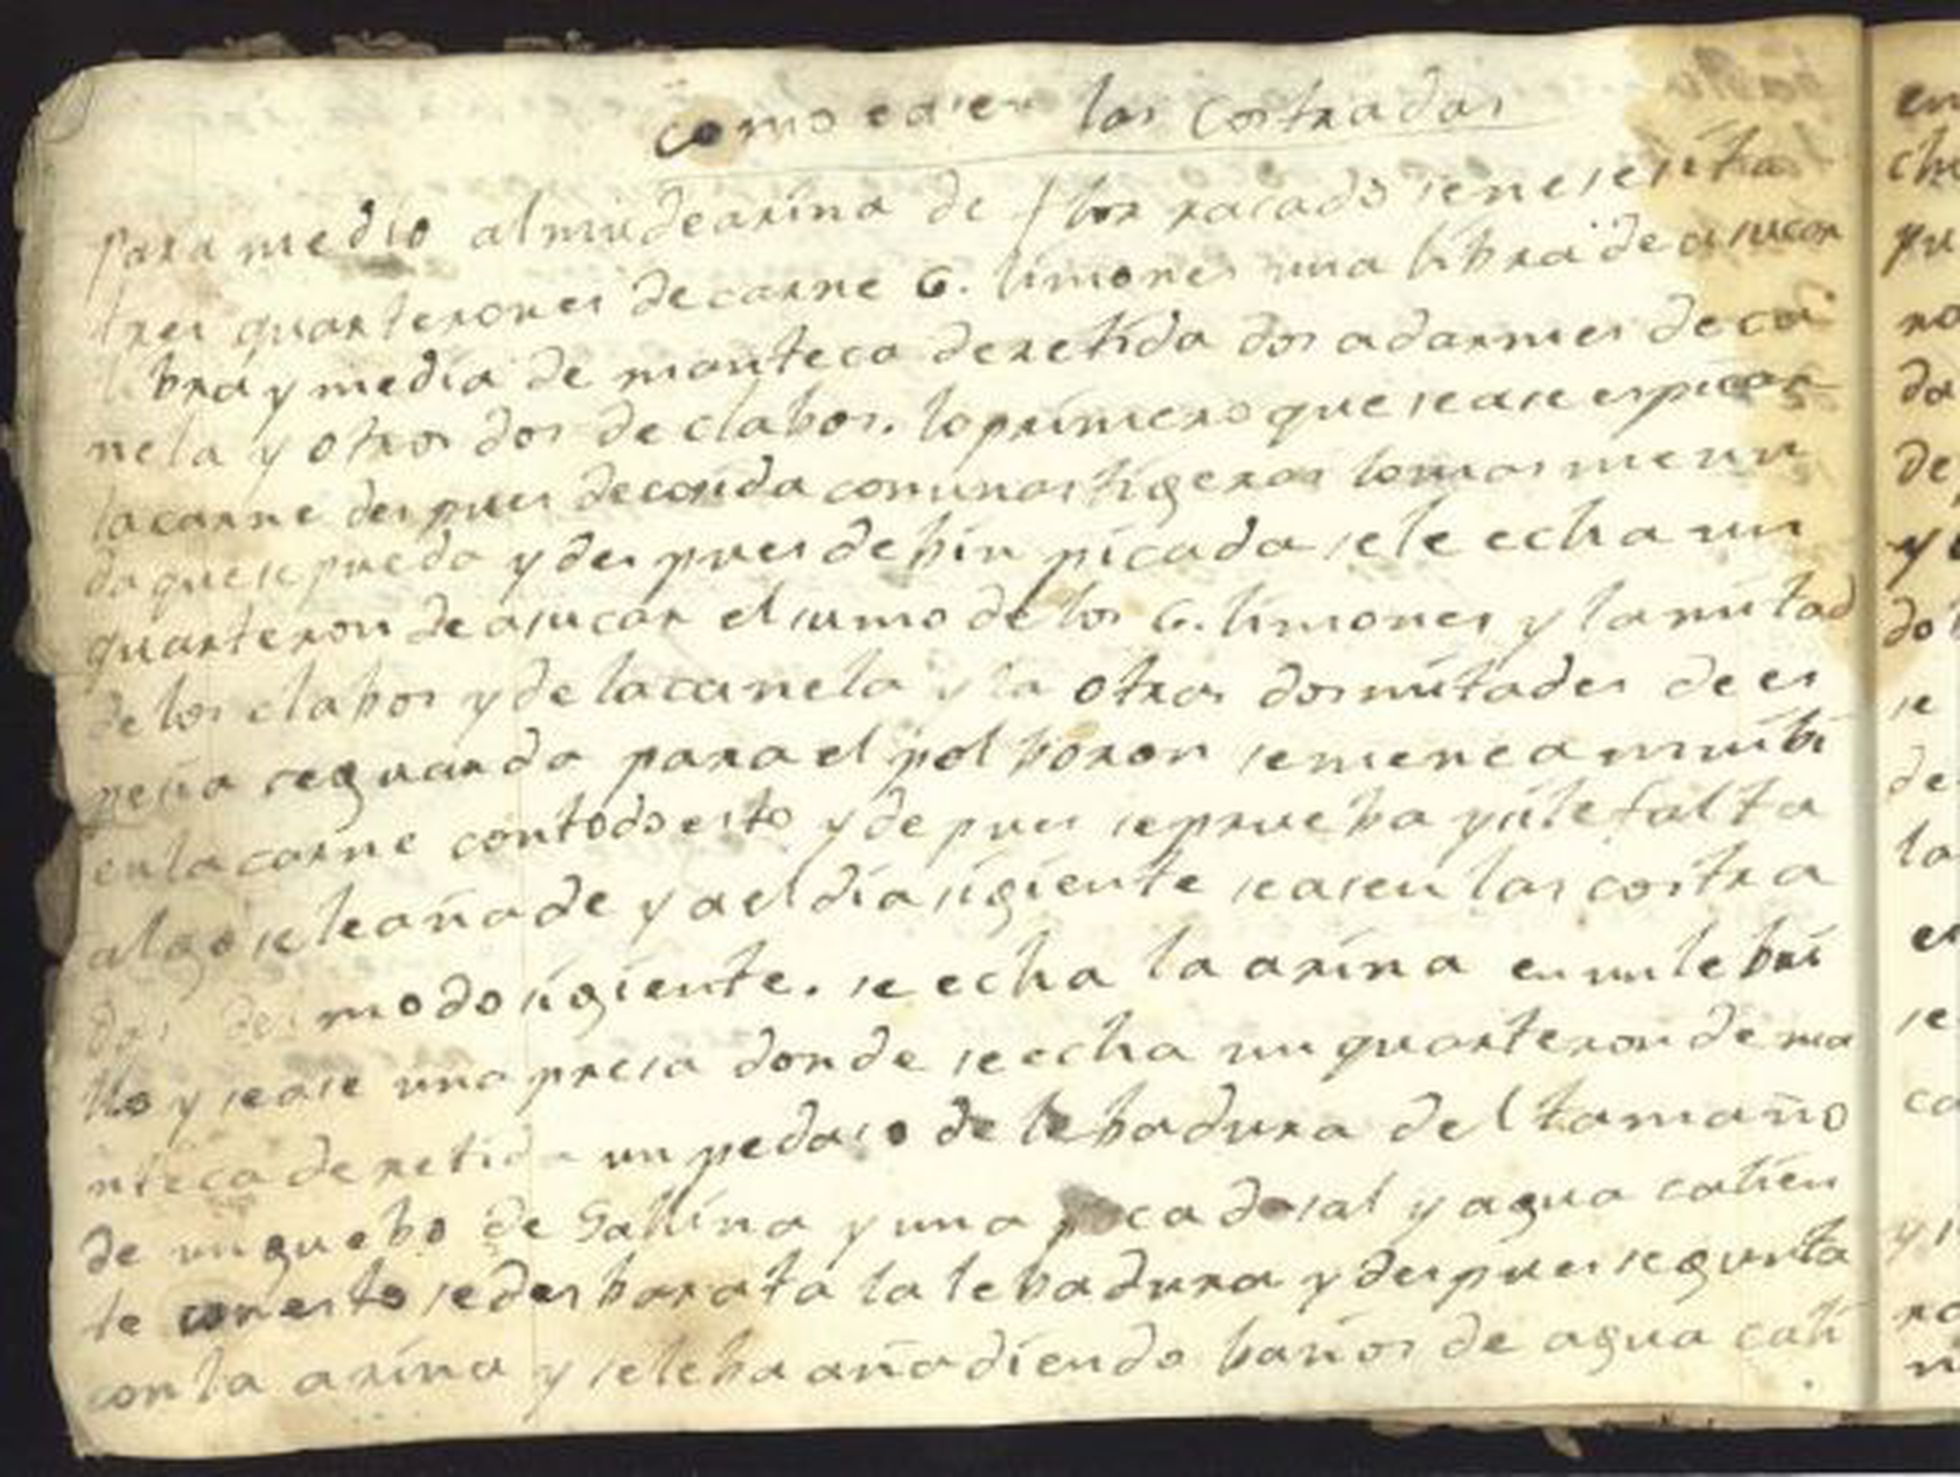 como asen las Costradas
para medio almudearina de flor racado senesesita
tres quarterones decarne 6. limones una libra de asucar
libra y media de manteca deretida dos adarmes deca
nela y otros dos de clabos. loprimero que sease espicar
lacarne despues decosida conunastigeras lomasmenu
da quesepueda y des pues debin picada sele echa un
quarteron de asucar elsumo de los 6. limones y lamitad
de los clabos y de lacanela y la otras dosmitades de es
pesia seguarda para el pol boron semenea muibi
enlacarne contodo esto y depues seprueba ysile falta
algo seleañade y a el dia sigiente seasen las costra
das del modo sigiente. se echa la arina en un lebri
llo y sease una presa donde seecha un quarteron de ma
nteca deretida un pedaso de lebadura del tamaño
de unguebo de Gallina y una poca desal y agua calien
te conesto sedesbarata la lebadura y despues segunta
con la arina y seleba añadiendo baños de agua cali